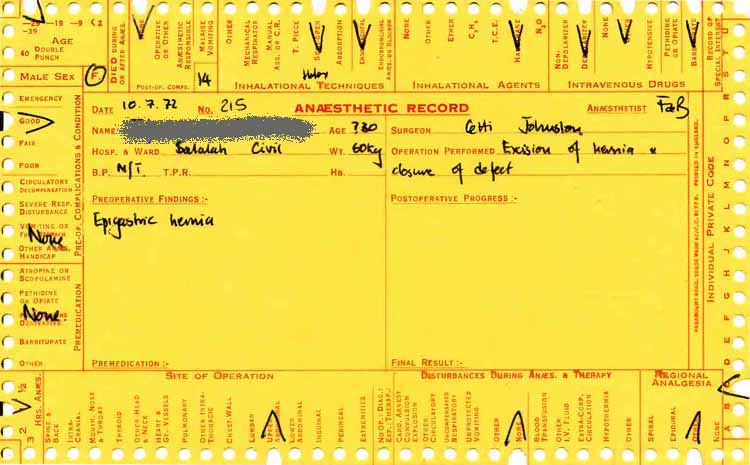 -29 -19 -9 < 2
-39
40
AGE
DOUBLE
PUNCH
MALE SEX F
DIED DURING OR AFTER ANÆS.
NONE
OPERATIVE OR OTHER
ANÆSTHETIC RESPONSIBLE
MALAISE VOMITING
OTHER
POST-OP. COMPS.
14
MECHANICAL RESPIRATOR
MANUAL ASS. OR C.R.
T. PIECE
ABSORPTION
ENDOTRACHEAL
INHALATIONAL TECHNIQUES
NONE
OTHER
ETHER
C₃H₆
T.C.E.
HALOTHANE
N₂O
INHALATIONAL AGENTS
NON-DEPOLARIZER
DEPOLARIZER
NONE
HYPOTENSIVE
PETHIDINE OR OPIATE
BARBITURATE
INTRAVENOUS DRUGS
RECORD OF SPECIAL INTEREST
DATE 10.7.72 NO. 215 ANÆSTHETIC RECORD ANÆSTHETIST
NAME AGE ?30 SURGEON Cetti Johnston
HOSP. & WARD Salalah Civil WT. 60kg OPERATION PERFORMED Excision of hernia &
B.P. N/T T.P.R. HB. closure of defect
PREOPERATIVE FINDINGS :- POSTOPERATIVE PROGRESS :-
Epigastric hernia
PREMEDICATION :- FINAL RESULT :-
EMERGENCY
GOOD
FAIR
POOR
CIRCULATORY
DECOMPENSATION
SEVERE RESP.
DISTURBANCE
VOMITING OR
None
OTHER ANÆS.
HANDICAP
PRE-OP. COMPLICATIONS & CONDITION
ATROPINE OR
SCOPOLAMINE
PETHIDINE
OR OPIATE
None.
DERIVATIVE
BARBITURATE
OTHER
PREMEDICATION
INDIVIDUAL PRIVATE CODE
PRINTED IN ENGLAND.
A B C D E F G H I J K L M N O P Q R S T U
3 2 ½
HRS. ANÆS.
SITE OF OPERATION
SPINE & BACK
INTRA-CRANIAL
MOUTH, NOSE & THROAT
THYROID
OTHER HEAD & NECK
HEART & GT. VESSELS
PULMONARY
OTHER INTRA-THORACIC
CHEST-WALL
LUMBAR
UPPER ABDOMINAL
LOWER ABDOMINAL
INGUINAL
PERINEAL
EXTREMITIES
DISTURBANCES DURING ANÆS. & THERAPY
CARD. ARREST
CONVULSION
EXPLOSION
OTHER CIRCULATORY
UNCOMPENSATED RESPIRATORY
UNPROTECTED VOMITING
OTHER
NONE
BLOOD TRANSFUSION
OTHER I.V. FLUID
EXTRA-CORP. CIRCULATION
HYPOTHERMY
OTHER
REGIONAL
ANALGESIA
SPINAL
EPIDURAL
OTHER
NONE